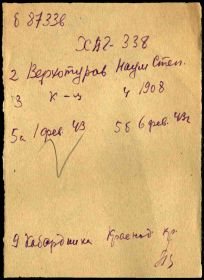 б 87336
ХАГ-338
2 Верхотуров Наум Степ.
3 к-ц 4 1908
5а 1 фев 43 5б 6 фев. 43г
9 Кабардинка Краснод. кр.